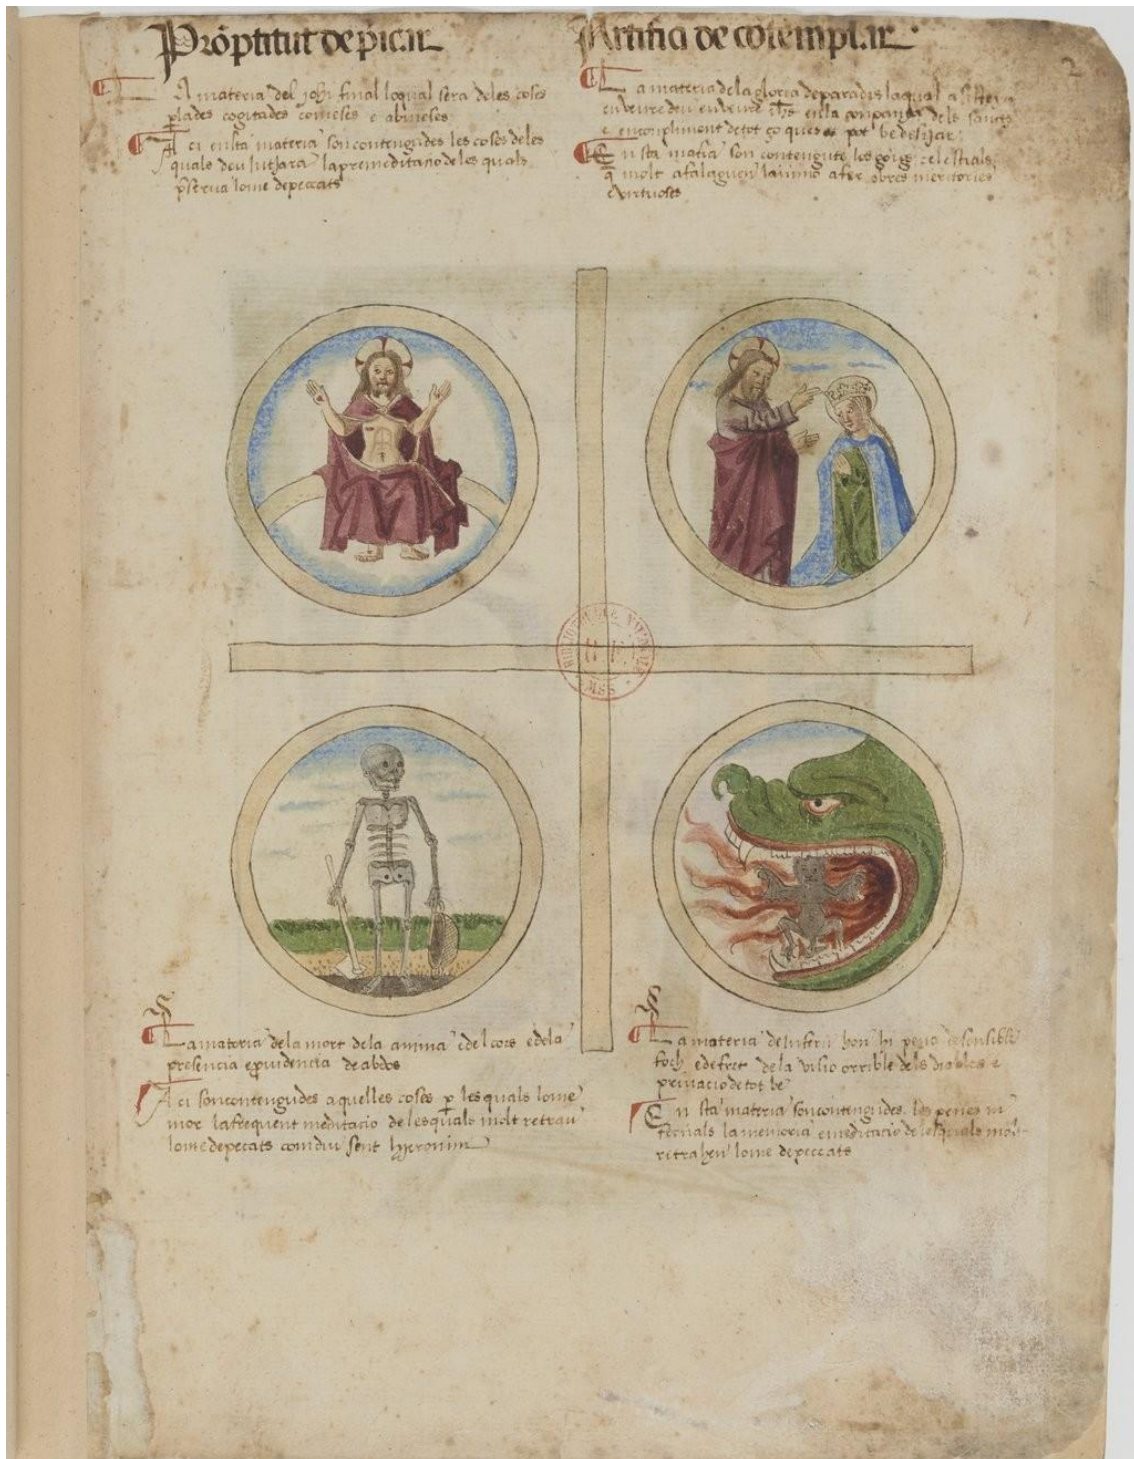 Proptitut de p̄icar
La materia del johi final loqual sera de les coses
parlades cogitades comeses e abmeses
Aci en esta materia son contengudes les coses de les
quals deu lutjara la premeditacio de les quals
p̄serua lome de peccats
Artifici de cōtemplar
2
La materia de la gloria de paradis la qual
en veure deu en veure ih̄s en la companya dels sancts
e en compliment de tot ço que es pot be desijar
En sta mat̄ia son contenguts los goigs celestials
q̄ molt afalaguen la anima a fer obres meritories
e virtuoses
La materia de la mort de la anima e del cors e de la
presencia e de abdos
Aci son contengudes aquelles coses p̄ les quals lome
mor la frequent meditacio de les quals molt retrau
lome de pecats com diu sent hyeronim
La materia de infern hon hi pena de sensible
foch e de fret de la visio orrible dels diables e
priuacio de tot be
En sta materia son contengudes les penes in
fernals la memoria e meditacio de les quals mol
retrahen lome de peccats
BIBLIOTHEQUE NATIONALE
MSS